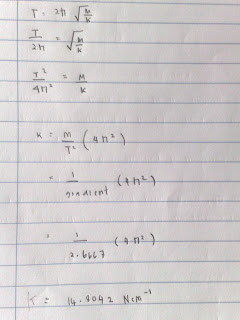 T = 2π √M/K
T/2π = √M/K
T²/4π² = M/K
K = M/T² (4π²)
= 1/gradient (4π²)
= 1/2.6667 (4π²)
K = 14.8042 Ncm⁻¹